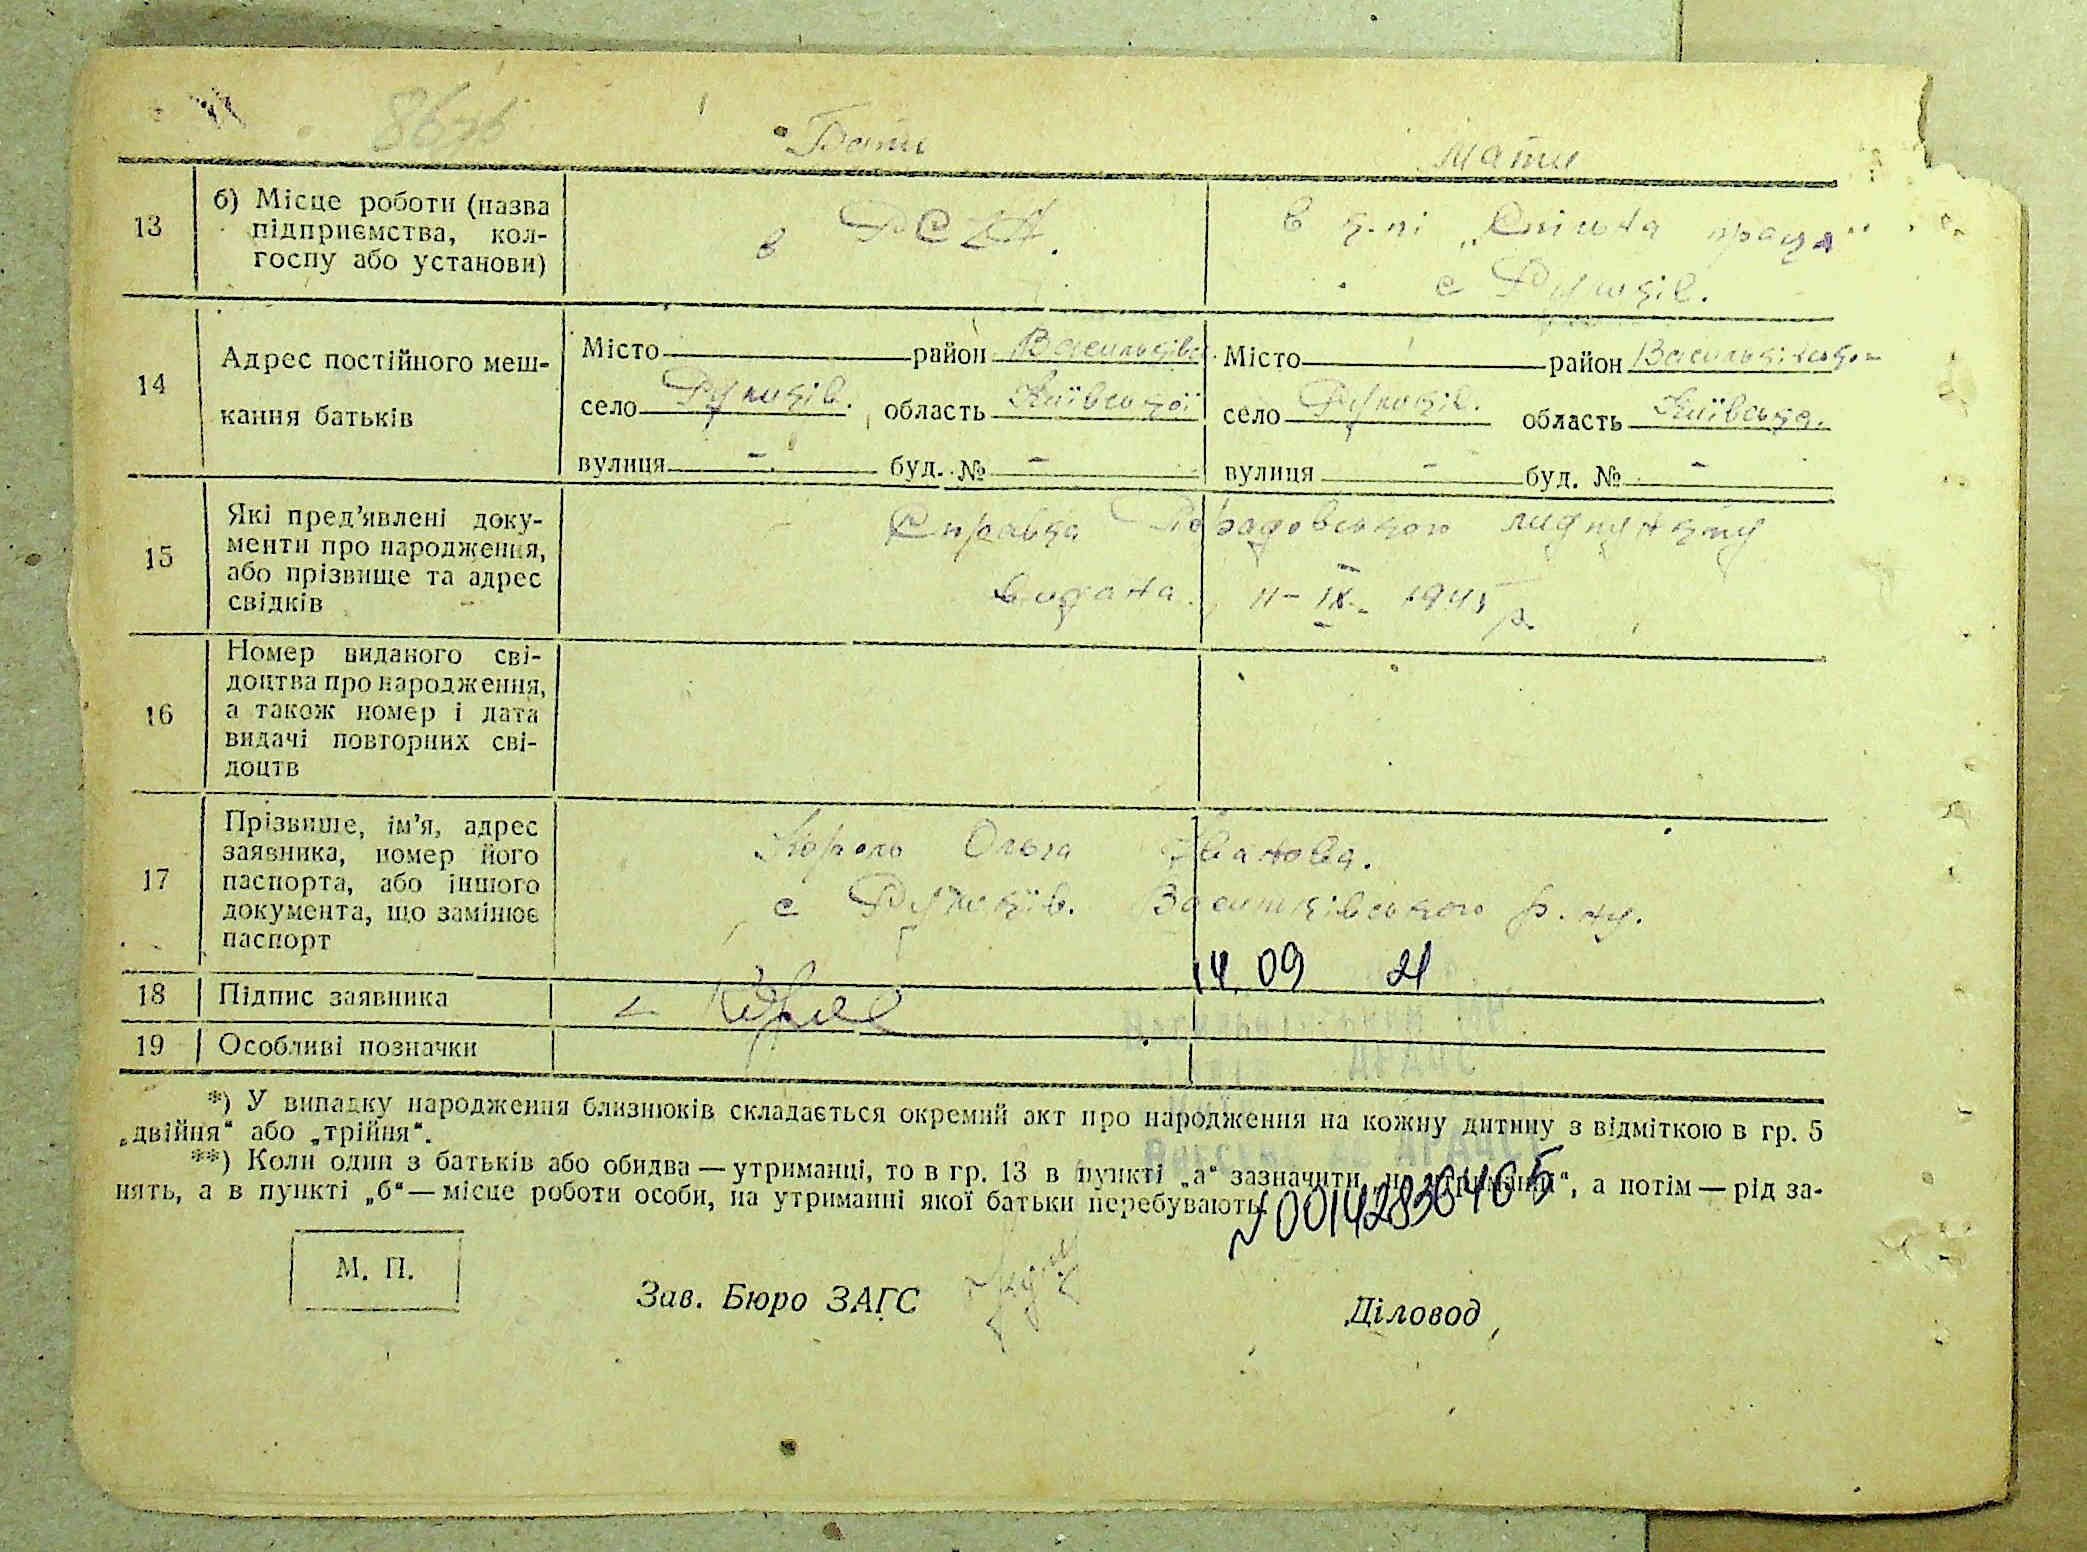 86зв
Батько
Мати
13
б) Місце роботи (назва
підприємства, кол-
госпу або установи)
в РСЧА.
в к-пі „Спільна праця"
с Рулików.
14
Адрес постійного меш-
кання батьків
Місто район Васильківс. Місто район Васильківськ-
село область Київської село область Київська.
вулиця - буд. № - вулиця - буд. № -
15
Які пред'явлені доку-
менти про народження,
або прізвище та адрес
свідків
Справка медпункту
видана 11-IX- 1945 р.
16
Номер виданого сві-
доцтва про народження,
а також номер і дата
видачі повторних сві-
доцтв
17
Прізвище, ім'я, адрес
заявника, номер його
паспорта, або іншого
документа, що замінює
паспорт
Король Ольга Іванова.
с Васильківського р-ну.
14 09 21
18 Підпис заявника
19 Особливі позначки
*) У випадку народження близнюків складається окремий акт про народження на кожну дитину з відміткою в гр. 5
„двійня" або „трійня".
**) Коли один з батьків або обидва — утриманці, то в гр. 13 в пункті „а" зазначити „на утриманні", а потім — рід за-
нять, а в пункті „б" — місце роботи особи, на утриманні якої батьки перебувають.
N 00142836405
М. П.
Зав. Бюро ЗАГС
Діловод